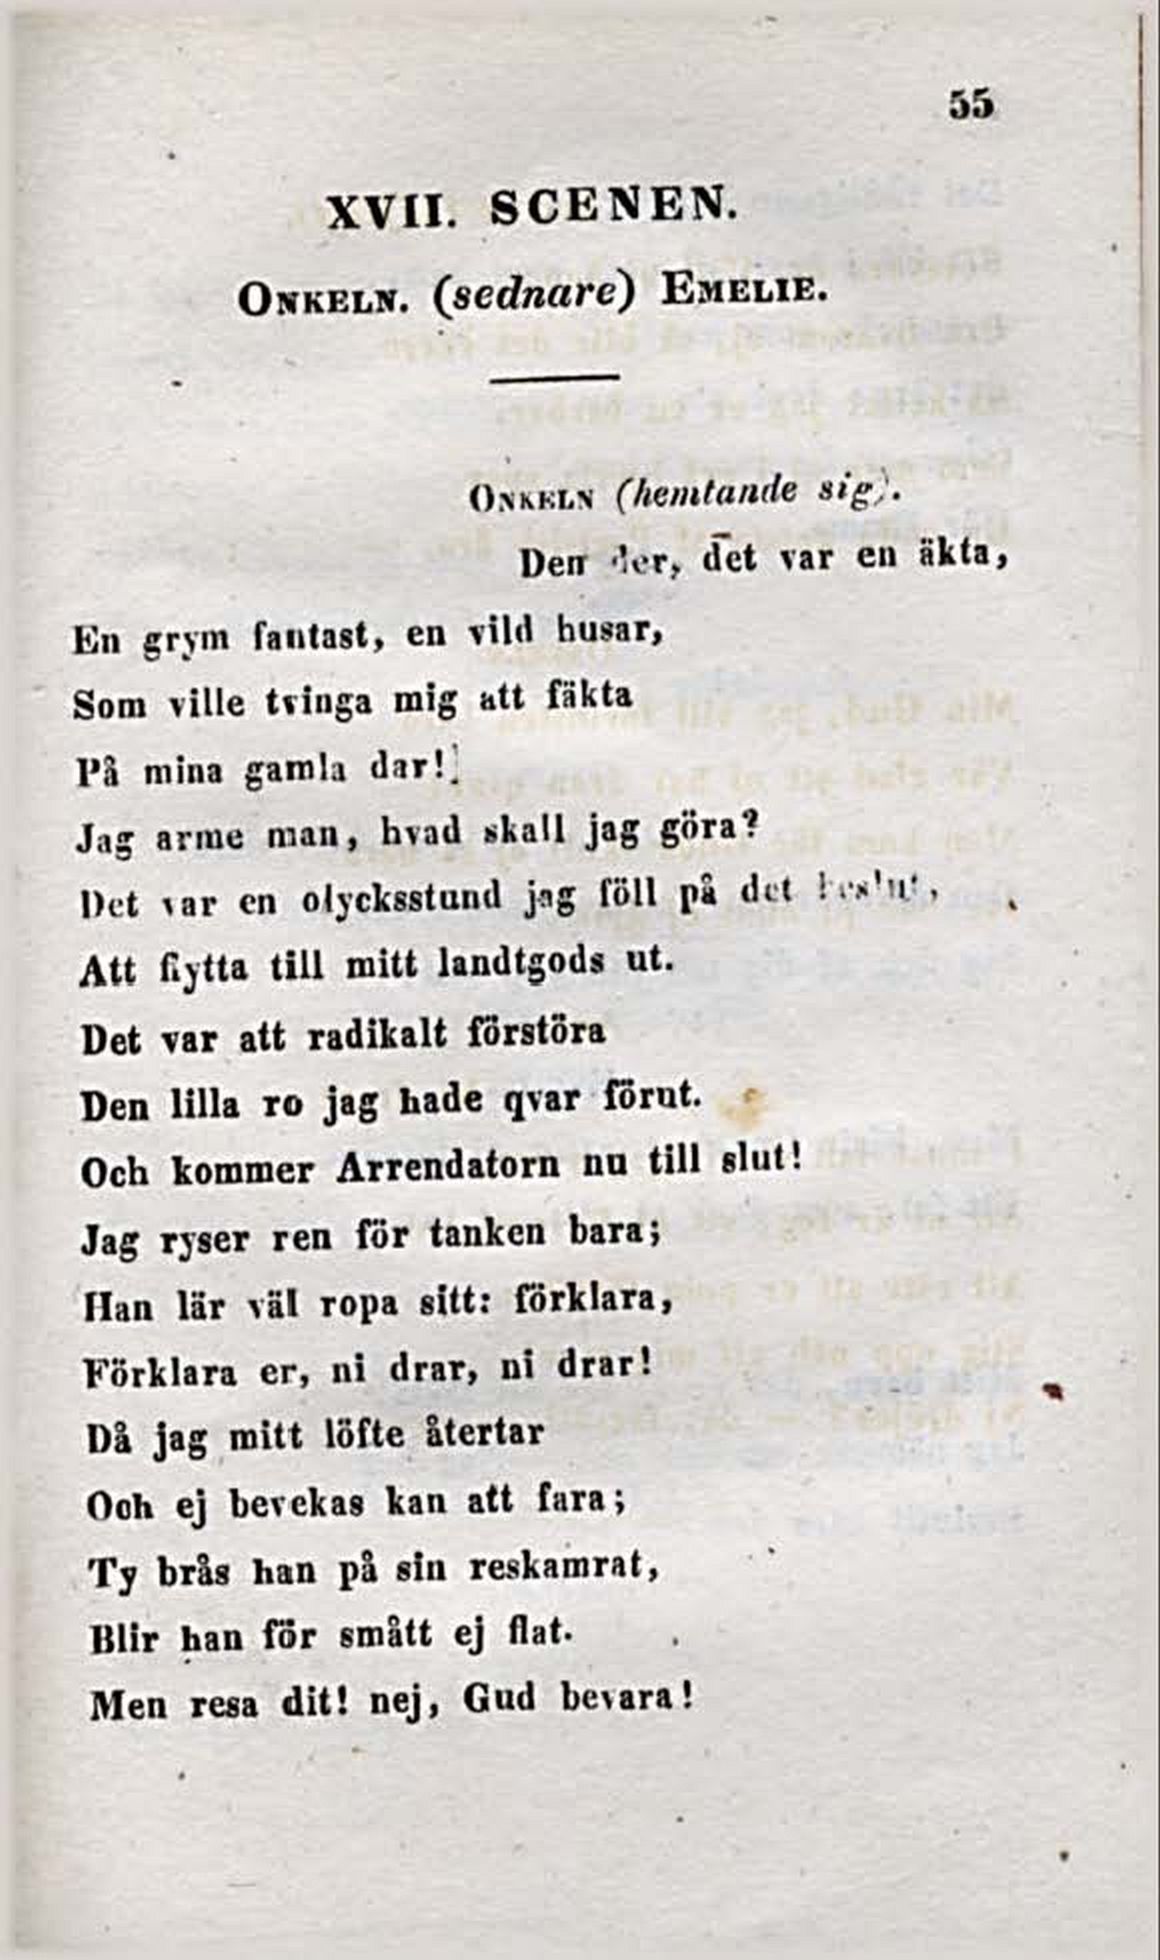 55
XVII. SCENEN.
ONKELN. (sednare) EMELIE.
ONKELN (hemtande sig).
Den der, det var en äkta,
En grym fantast, en vild husar,
Som ville tvinga mig att fäkta
På mina gamla dar!
Jag arme man, hvad skall jag göra?
Det var en olycksstund jag föll på det beslut,
Att flytta till mitt landtgods ut.
Det var att radikalt förstöra
Den lilla ro jag hade qvar förut.
Och kommer Arrendatorn nu till slut!
Jag ryser ren för tanken bara;
Han lär väl ropa sitt: förklara,
Förklara er, ni drar, ni drar!
Då jag mitt löfte återtar
Och ej bevekas kan att fara;
Ty brås han på sin reskamrat,
Blir han för smått ej flat.
Men resa dit! nej, Gud bevara!